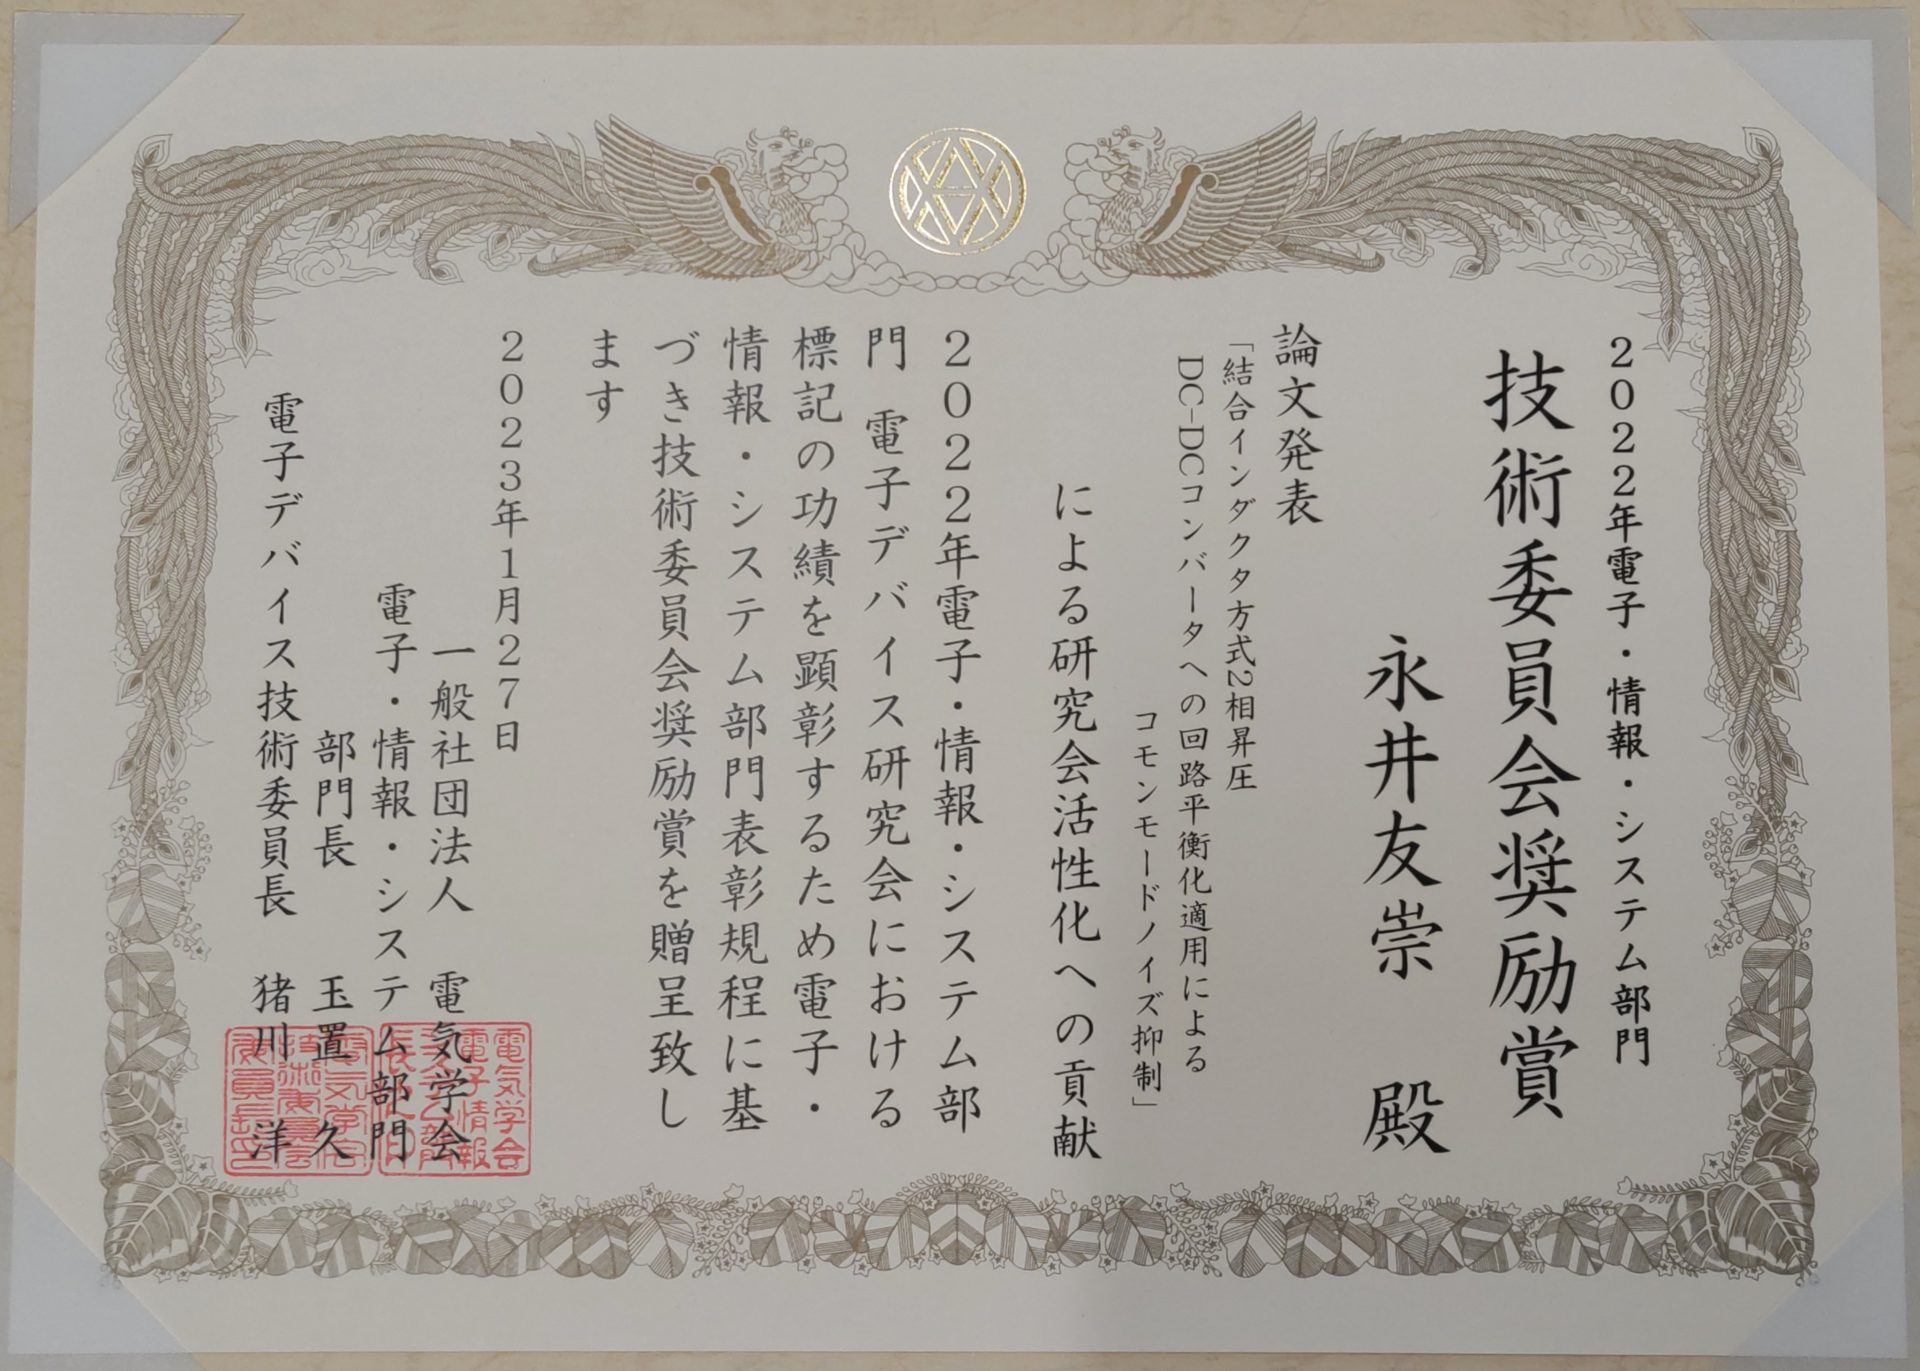 2022年電子・情報・システム部門
技術委員会奨励賞
永井友崇 殿
論文発表
「結合インダクタ方式2相昇圧
DC-DCコンバータへの回路平衡化適用による
コモンモードノイズ抑制」
による研究会活性化への貢献
2022年電子・情報・システム部
門 電子デバイス研究会における
標記の功績を顕彰するため電子・
情報・システム部門表彰規程に基
づき技術委員会奨励賞を贈呈致し
ます
2023年1月27日
一般社団法人 電気学会
電子・情報・システム部門
部門長 玉置 久
電子デバイス技術委員長 猪川 洋